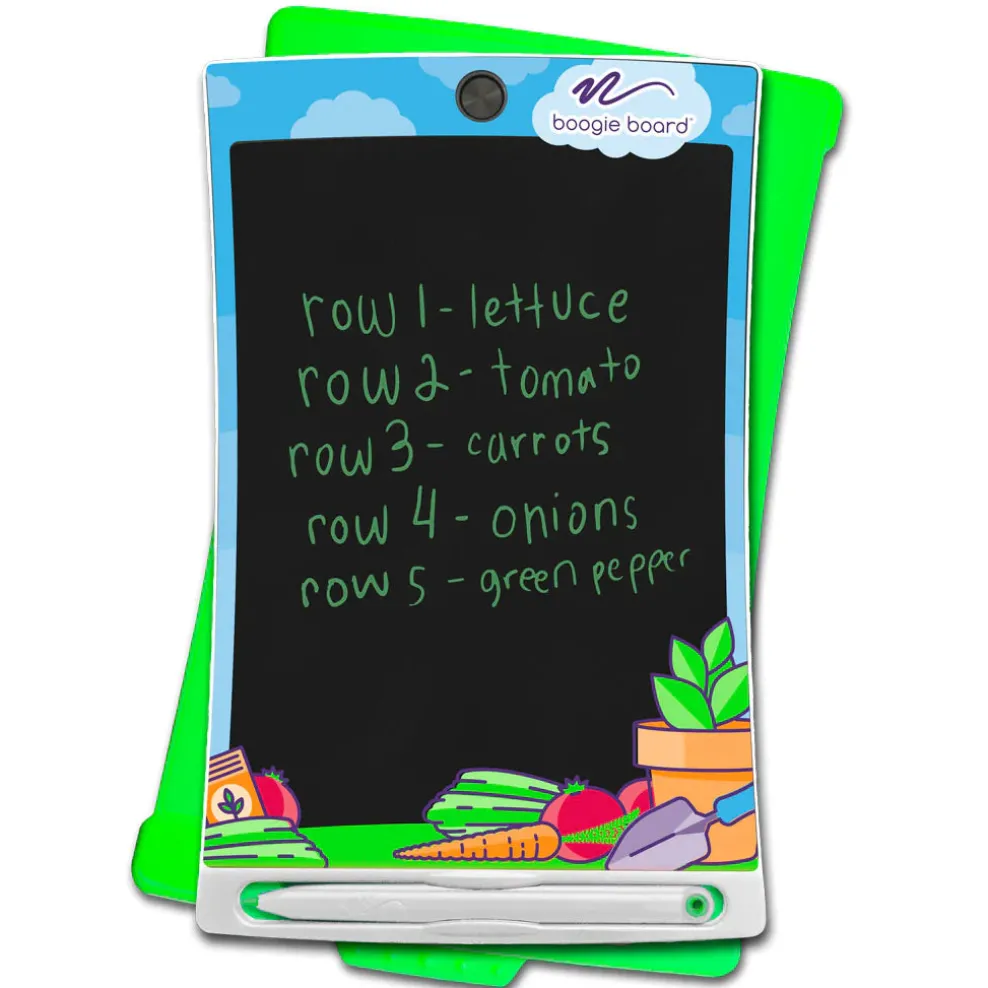 boogie board
row 1 - lettuce
row 2 - tomato
row 3 - carrots
row 4 - onions
row 5 - green pepper